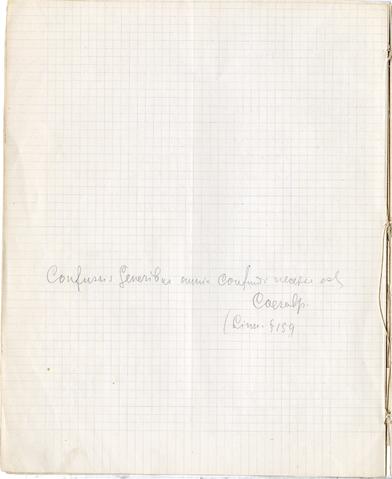 Confusis Generibus omnia confundi necesse est
Caesalp.
(Linn. § 159